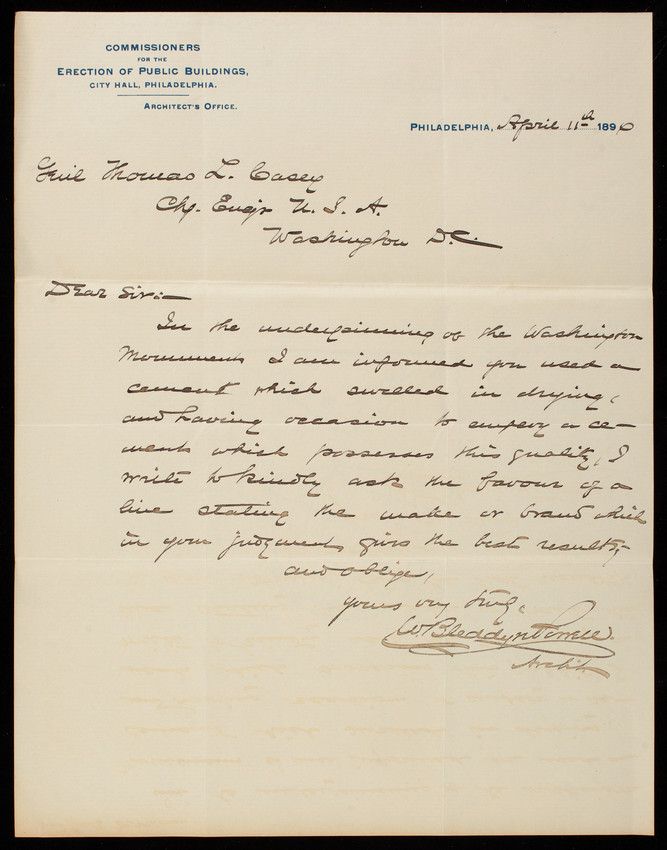 COMMISSIONERS
FOR THE
ERECTION OF PUBLIC BUILDINGS,
CITY HALL, PHILADELPHIA.
ARCHITECT'S OFFICE.
PHILADELPHIA, April 11th 1890
Genl Thomas L. Casey
Chf. Engr U. S. A.
Washington D.C.
Dear Sir:—
In the underpinning of the Washington
Monument I am informed you used a
cement which swelled in drying,
and having occasion to employ a ce-
ment which possesses this quality, I
write to kindly ask the favour of a
line stating the make or brand which
in your judgment gives the best results,
and oblige,
yours very truly,
W. Bleddyn Powell.
Archt.